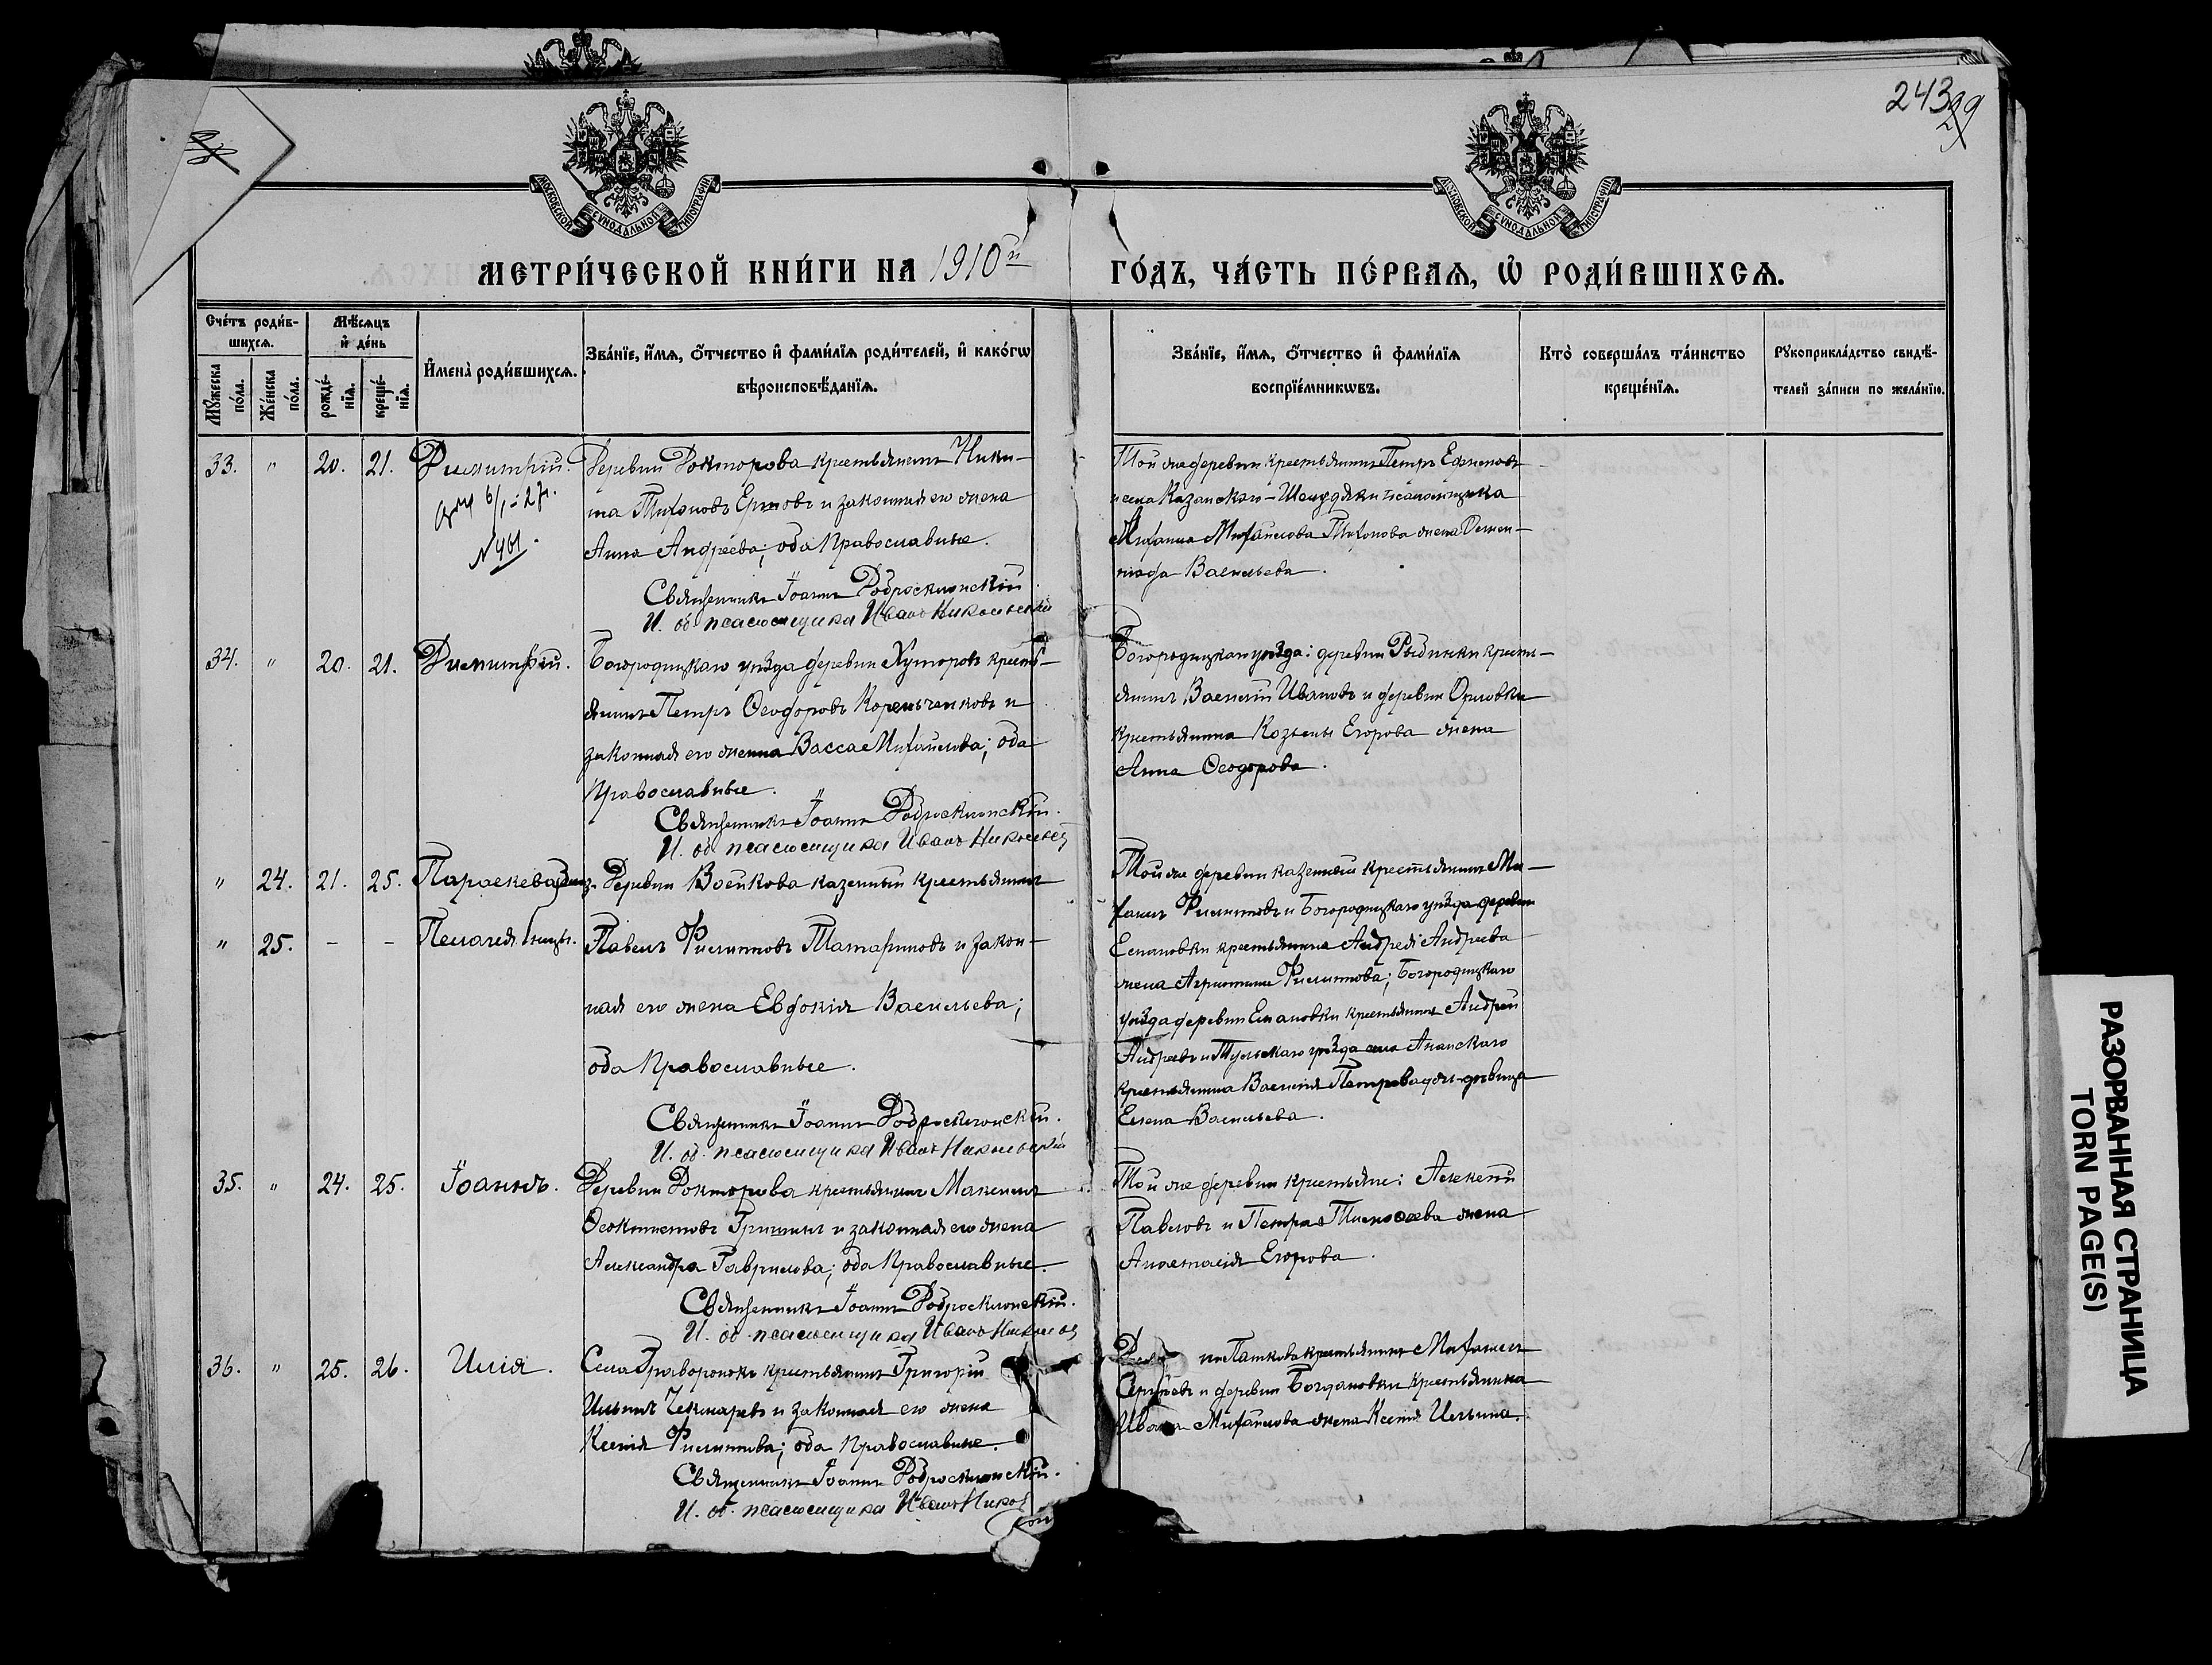 243
29
МОСКОВСКОЙ СѴНОДАЛЬНОЙ ТИПОГРАФІИ
МОСКОВСКОЙ СѴНОДАЛЬНОЙ ТИПОГРАФІИ
МЕТРИ́ЧЕСКОЙ КНИ́ГИ НА 1910й
ГО́ДЪ, ЧА́СТЬ ПЕ́РВАѦ, Ѡ҆ РОДИ́ВШИХСѦ.
Сче́тъ роди́в-
шихсѧ.
Мꙋжеска по́ла.
Же́нска по́ла.
Мѣ́сѧцъ
и҆ де́нь
рожде́-
нїѧ.
креще́-
нїѧ.
И҆мена̀ роди́вшихсѧ.
Зва́нїе, и҆́мѧ, ѻ҆́тчество и҆ фами́лїѧ роди́телей, и҆ како́гѡ
вѣроисповѣ́данїѧ.
Зва́нїе, и҆́мѧ, ѻ҆́тчество и҆ фами́лїѧ
воспрїе́мникѡвъ.
Кто̀ соверша́лъ та́инство
креще́нїѧ.
Рꙋкоприкла́дство свидѣ́-
телей за́писи по жела́нїю.
33. " 20. 21. Димитрій.
№461.
Деревни Докторова крестьянинъ Ники-
та Тихоновъ Ершовъ и законная его жена
Анна Андреева; оба Православные.
Священникъ Іоаннъ Доброклонскій
И. об. псаломщика Иванъ Никольскій
Той же деревни крестьянинъ Петръ Ефимовъ
и села Казанскаго-Шенудяки псаломщика
Михаила Михайлова Тихонова жена
Васильева.
34. " 20. 21. Димитрій.
Богородицкаго уѣзда деревни Хуторовъ кресть-
янинъ Петръ Ѳеодоровъ Корольченковъ и
законная его жена Васса Михайлова; оба
Православные.
Священникъ Іоаннъ Доброклонскій.
И. об. псаломщика Иванъ Никольскій
Богородицкаго уѣзда: деревни Рыдинки кресть-
янинъ Василій Ивановъ и деревни Орловки
крестьянина Козьмы Егорова жена
Анна Ѳеодорова.
" 24. 21. 25. Параскева
" 25. - - Пелагея близн.
Деревни Воейкова казенный крестьянинъ
Павелъ Филипповъ Татариновъ и закон-
ная его жена Евдокія Васильева;
оба Православные.
Священникъ Іоаннъ Доброклонскій.
И. об. псаломщика Иванъ Никольскій
Той же деревни казенный крестьянинъ Ми-
хаилъ Филипповъ и Богородицкаго уѣзда деревни
Епановки крестьянина Андрея Андреева
жена Агриппина Филиппова; Богородицкаго
уѣзда деревни Епановки крестьянинъ Андрей
Андреевъ и Тульскаго уѣзда села Ананскаго
крестьянина Василія Петрова дочь-дѣвица
Елена Васильева.
35. " 24. 25. Іоаннъ.
Деревни Докторова крестьянинъ Максимъ
Ѳеоктистовъ Гришинъ и законная его жена
Александра Гаврилова; оба Православные.
Священникъ Іоаннъ Доброклонскій.
И. об. псаломщика Иванъ Никольскій
Той же деревни крестьяне: Алексѣй
Павловъ и Петра Тимоѳеева жена
Анастасія Егорова.
36. " 25. 26. Илія.
Села Граворонокъ крестьянинъ Григорій
Ильинъ Чекмаревъ и законная его жена
Ксенія Филиппова; оба Православные.
Священникъ Іоаннъ Доброклонскій.
И. об. псаломщика Иванъ Николь
ской
Паткова крестьянинъ Михаилъ
Сергѣевъ и деревни Богдановки крестьянина
Ивана Михайлова жена Ксенія Ильина.
РАЗОРВАННАЯ СТРАНИЦА
TORN PAGE(S)